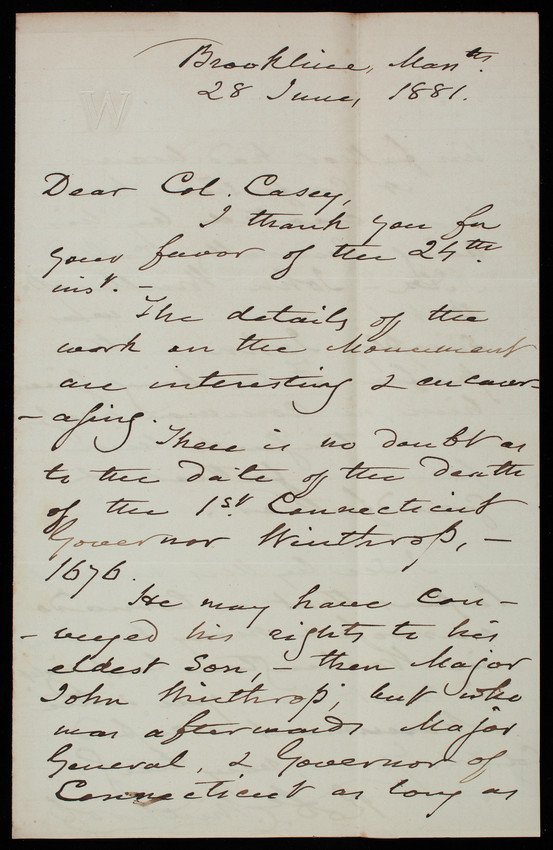 Brookline, Masstts.
28 June, 1881.
W
Dear Col. Casey,
I thank you for
your favor of the 24th.
inst. -
The details of the
work on the Monument
are interesting & encour-
- aging.
There is no doubt as
to the date of the death
of the 1st Connecticut
Governor Winthrop, -
1676.
He may have con -
- veyed his rights to his
eldest Son, - then Major
John Winthrop; but who
was afterwards Major
General, & Governor of
Connecticut as long as